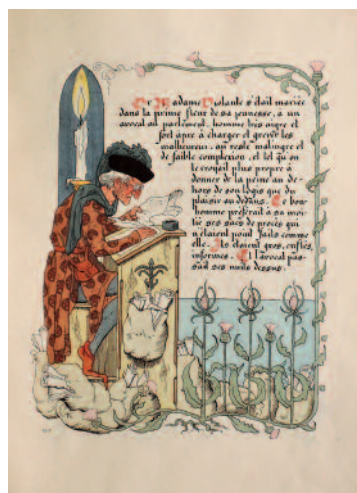 Or Madame Violante s'était mariée
dans la prime fleur de sa jeunesse, à un
avocat au parlement, homme très aigre et
fort âpre à charger et grever les
malheureux, au reste malingre et
de faible complexion, et tel qu'on
le croyait plus propre à
donner de la peine au de-
hors de son logis que du
plaisir au dedans. Ce bon-
homme préférait à sa moi-
tié ses sacs de procès qui
n'étaient point faits comme
elle. Ils étaient gros, enflés,
informes. Et l'avocat pas-
sait ses nuits dessus.